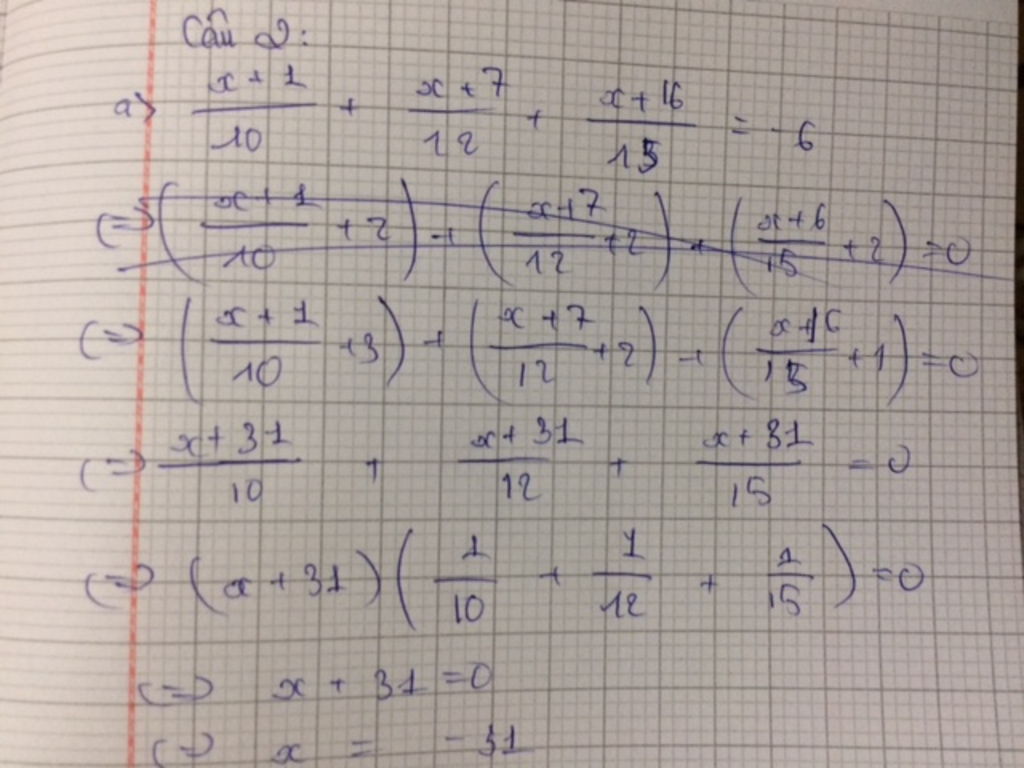 Câu 2:
a) \frac{x+1}{10} + \frac{x+7}{12} + \frac{x+16}{15} = -6
(=) (\frac{x+1}{10} + 2) + (\frac{x+7}{12} + 2) + (\frac{x+6}{15} + 2) = 0
(=) (\frac{x+1}{10} + 3) + (\frac{x+7}{12} + 2) + (\frac{x+16}{15} + 1) = 0
(=) \frac{x+31}{10} + \frac{x+31}{12} + \frac{x+31}{15} = 0
(=) (x+31)(\frac{1}{10} + \frac{1}{12} + \frac{1}{15}) = 0
(=) x + 31 = 0
(=) x = -31